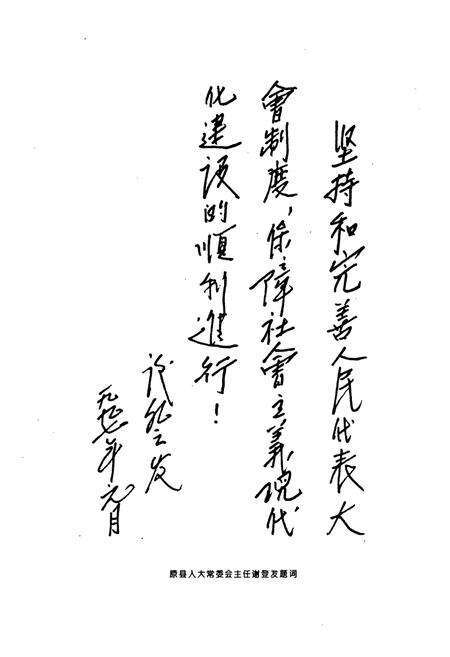 坚持和完善人民代表大
會制度，保障社會主義现代
化建设的順利進行！
谢登发
年元月
原县人大常委会主任谢登发题词